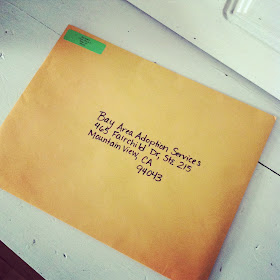 Bay Area Adoption Services
465 Fairchild Dr, Ste 215
Mountain View, CA
94043